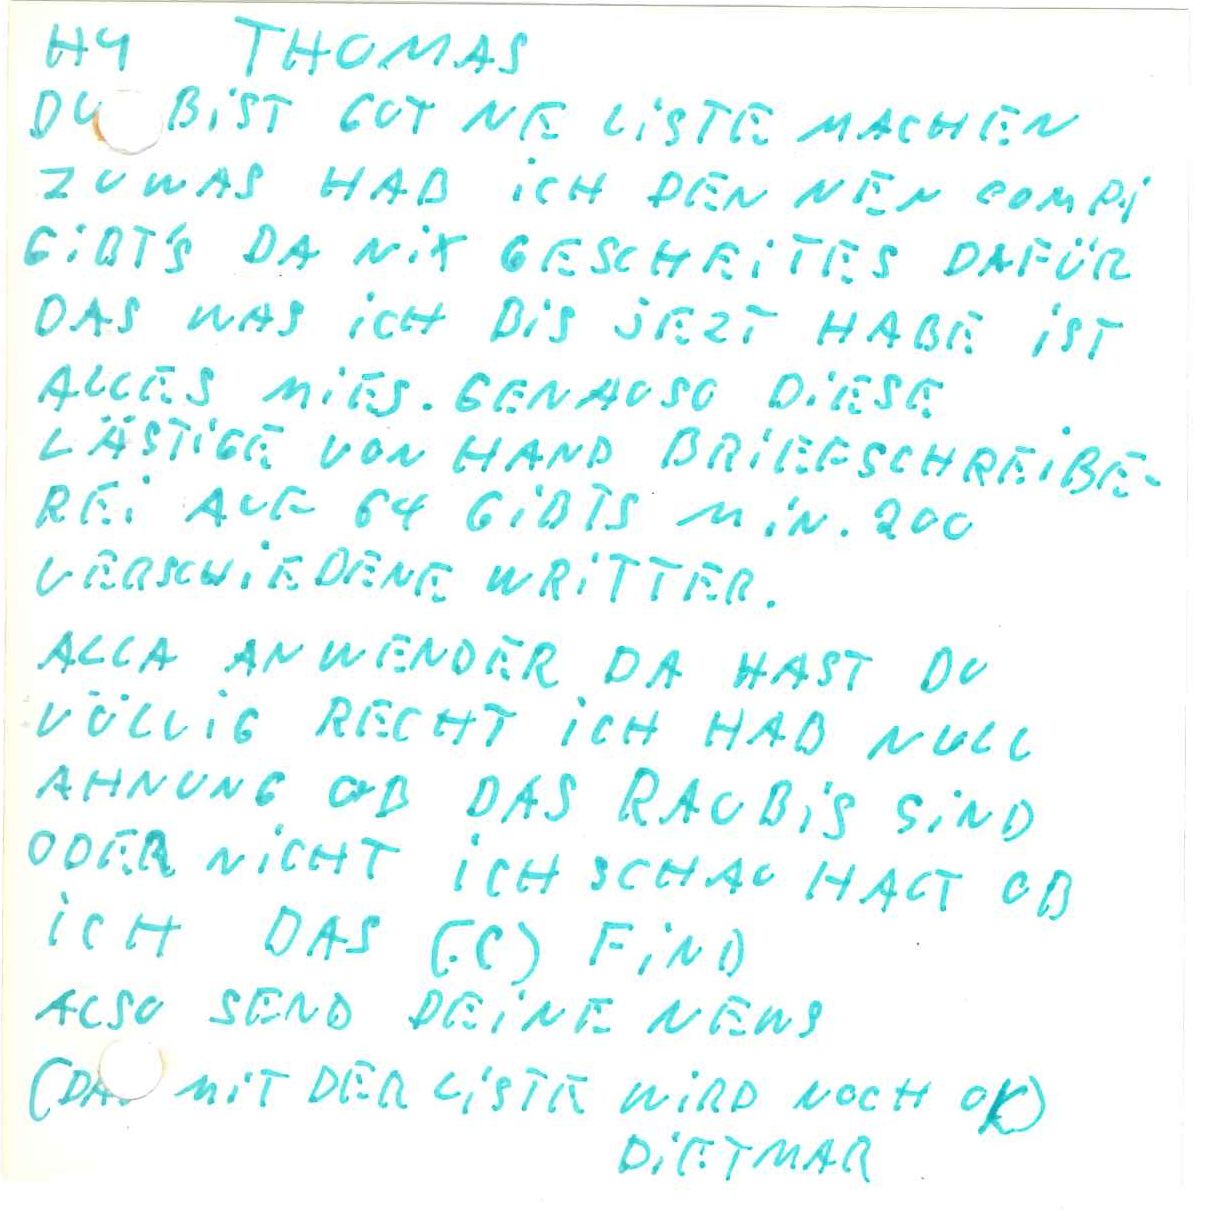 HY THOMAS
DU BIST GUT NE LISTE MACHEN
ZUWAS HAB ICH DEN NEN COMPI
GIBT'S DA NIX GESCHEITES DAFÜR
DAS WAS ICH BIS JEZT HABE IST
ALLES MIES. GENAUSO DIESE
LÄSTIGE VON HAND BRIEFSCHREIBE-
REI AUF 64 GIBTS MIN. 200
VERSCHIEDENE WRITTER.
ALLA ANWENDER DA HAST DU
VÖLLIG RECHT ICH HAB NULL
AHNUNG OB DAS RAUBIS SIND
ODER NICHT ICH SCHAU HALT OB
ICH DAS (C) FIND
ALSO SEND DEINE NEWS
(DAS MIT DER LISTE WIRD NOCH OK)
DIETMAR